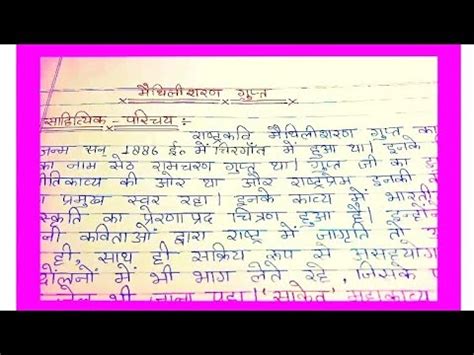 मैथिलीशरण गुप्त
साहित्यिक - परिचय :-
राष्ट्रकवि मैथिलीशरण गुप्त का
जन्म सन् 1886 ई० में चिरगाँव में हुआ था। इनके
का नाम सेठ रामचरण गुप्त था। गुप्त जी का
नीतिकाव्य की ओर था और राष्ट्रप्रेम इनकी
प्रमुख स्वर रहा। इनके काव्य में भारती
स्कृति का प्रेरणाप्रद चित्रण हुआ है।
नी कविताओं द्वारा राष्ट्र में जागृति तो
ही, साथ ही सक्रिय रूप से असहयोग
दोलनों में भी भाग लेते रहे, जिसके
जेल भी जाना पड़ा। 'साकेत' महाकाव्य